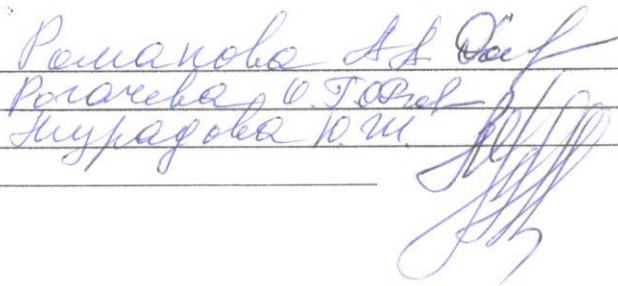 Романова А А
Рогачева О. Г.
Мурадова Ю. Ш.